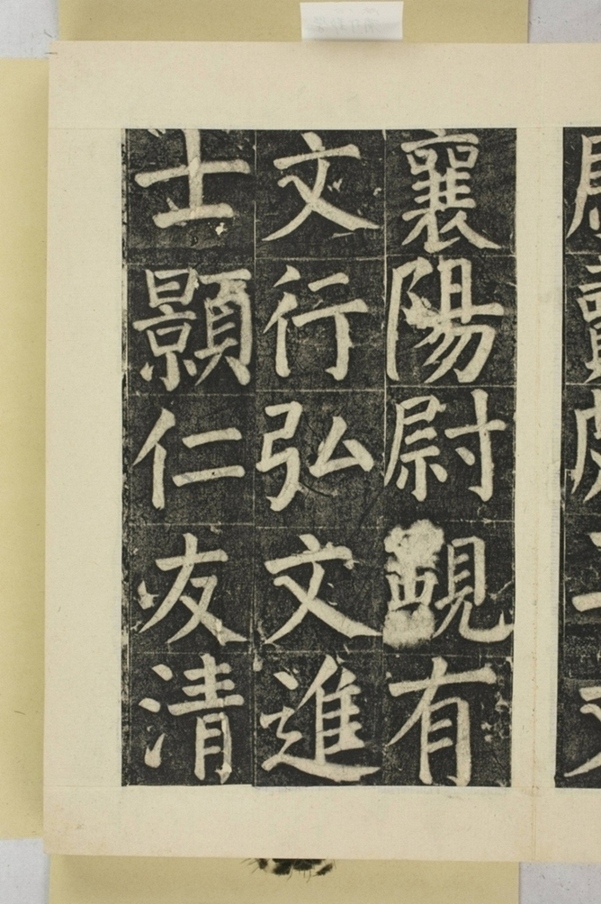 襄陽尉有
文行弘文進
士顥仁友清